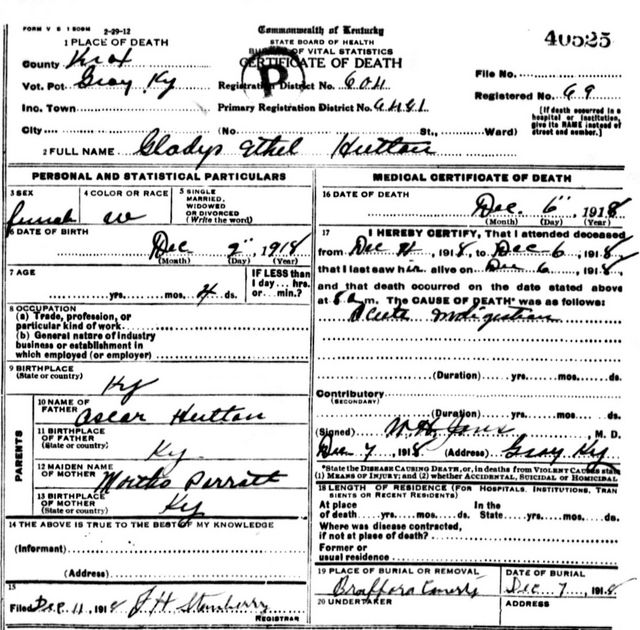 FORM V S 1 2-29-12
Commonwealth of Kentucky
STATE BOARD OF HEALTH
BUREAU OF VITAL STATISTICS
CERTIFICATE OF DEATH
P
40525
1 PLACE OF DEATH
County Knox
Vot. Pct Gray Ky
Inc. Town
City
Registration District No. 604
Primary Registration District No.
File No.
Registered No. 69
[If death occurred in a hospital or institution, give its NAME instead of street and number.]
(No St., Ward)
2 FULL NAME Gladys Ethel Hutton
PERSONAL AND STATISTICAL PARTICULARS
3 SEX female
4 COLOR OR RACE W
5 SINGLE MARRIED, WIDOWED OR DIVORCED (Write the word)
6 DATE OF BIRTH
Dec 2", 1918
(Month) (Day) (Year)
7 AGE
yrs. mos. 4 ds.
IF LESS than 1 day... hrs. or min.?
8 OCCUPATION
(a) Trade, profession, or particular kind of work
(b) General nature of industry
business or establishment in
which employed (or employer)
9 BIRTHPLACE
(State or country) Ky
PARENTS
10 NAME OF FATHER Oscar Hutton
11 BIRTHPLACE OF FATHER
(State or country) Ky
12 MAIDEN NAME OF MOTHER
13 BIRTHPLACE OF MOTHER
(State or country) Ky
14 THE ABOVE IS TRUE TO THE BEST OF MY KNOWLEDGE
(Informant)
(Address)
15
Filed Dec 11, 1918 J H Stanberry
REGISTRAR
MEDICAL CERTIFICATE OF DEATH
16 DATE OF DEATH
Dec. 6", 1918
(Month) (Day) (Year)
17 I HEREBY CERTIFY, That I attended deceased
from Dec 1918, to Dec 6, 1918,
that I last saw him alive on Dec 6, 1918,
and that death occurred on the date stated above
at 8 a m. The CAUSE OF DEATH* was as follows:
Acute Indigestion
(Duration) yrs. mos. ds.
Contributory
(SECONDARY)
(Duration) yrs. mos. ds.
(Signed) W H M. D.
Dec 7, 1918 (Address) Gray Ky
*State the DISEASE CAUSING DEATH, or, in deaths from VIOLENT CAUSES state
(1) MEANS OF INJURY; and (2) whether ACCIDENTAL, SUICIDAL or HOMICIDAL
18 LENGTH OF RESIDENCE (FOR HOSPITALS, INSTITUTIONS, TRAN
SIENTS OR RECENT RESIDENTS)
At place of death yrs. mos. ds. In the State yrs. mos. ds.
Where was disease contracted,
if not at place of death?
Former or
usual residence
19 PLACE OF BURIAL OR REMOVAL
DATE OF BURIAL
Dec 7, 1918
20 UNDERTAKER
ADDRESS